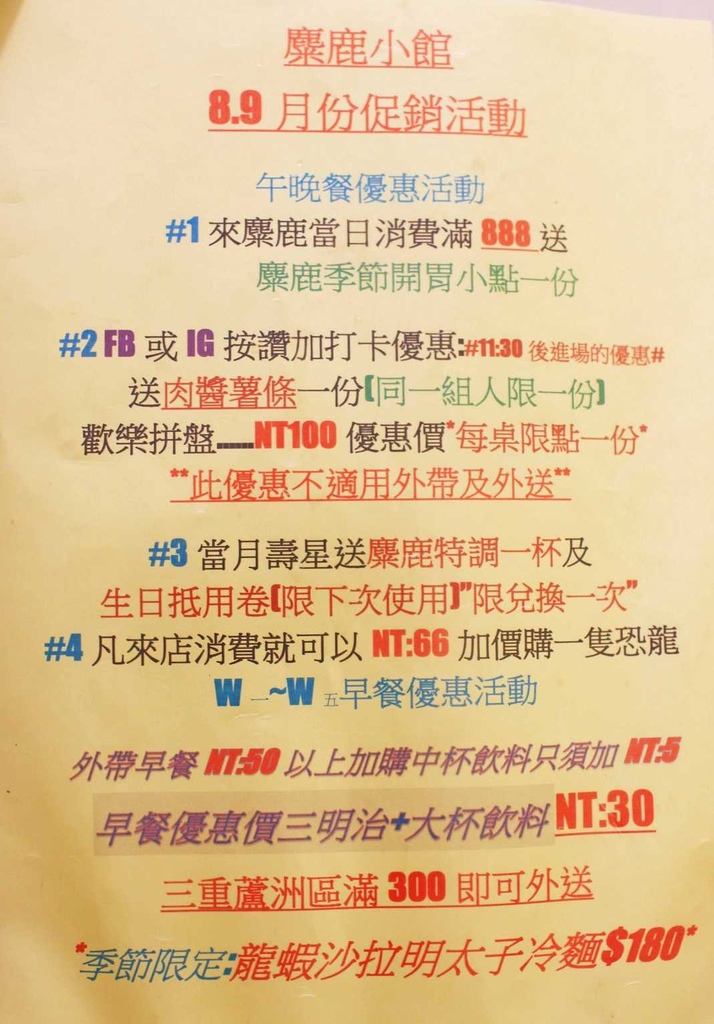 麋鹿小館
8.9 月份促銷活動
午晚餐優惠活動
#1 來麋鹿當日消費滿 888 送
麋鹿季節開胃小點一份
#2 FB 或 IG 按讚加打卡優惠:#11:30 後進場的優惠#
送肉醬薯條一份(同一組人限一份)
歡樂拼盤......NT100 優惠價*每桌限點一份*
**此優惠不適用外帶及外送**
#3 當月壽星送麋鹿特調一杯及
生日抵用卷(限下次使用)"限兌換一次"
#4 凡來店消費就可以 NT:66 加價購一隻恐龍
W 一~W 五早餐優惠活動
外帶早餐 NT:50 以上加購中杯飲料只須加 NT:5
早餐優惠價三明治+大杯飲料 NT:30
三重蘆洲區滿 300 即可外送
*季節限定:龍蝦沙拉明太子冷麵$180*